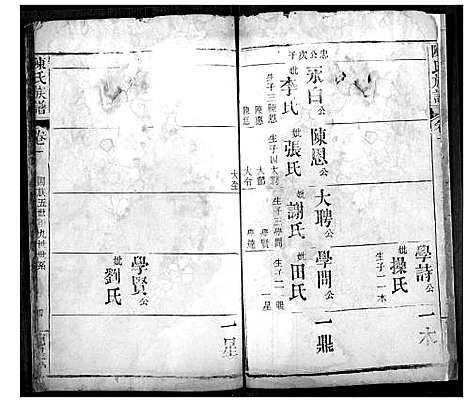 陳氏族譜
學詩公
妣操氏
生子一 一木
一木
忠公次子
永白公
妣李氏
生子三 陳恩
陳應
陳恩公
妣張氏
生子四 大聘
大爵
大全
大聘公
妣謝氏
生子三 學問
學賢
學問公
妣田氏
生子二 一鼎
一星
一鼎
學賢公
妣劉氏
一星
陳氏族譜
卷二
五世 九世世系